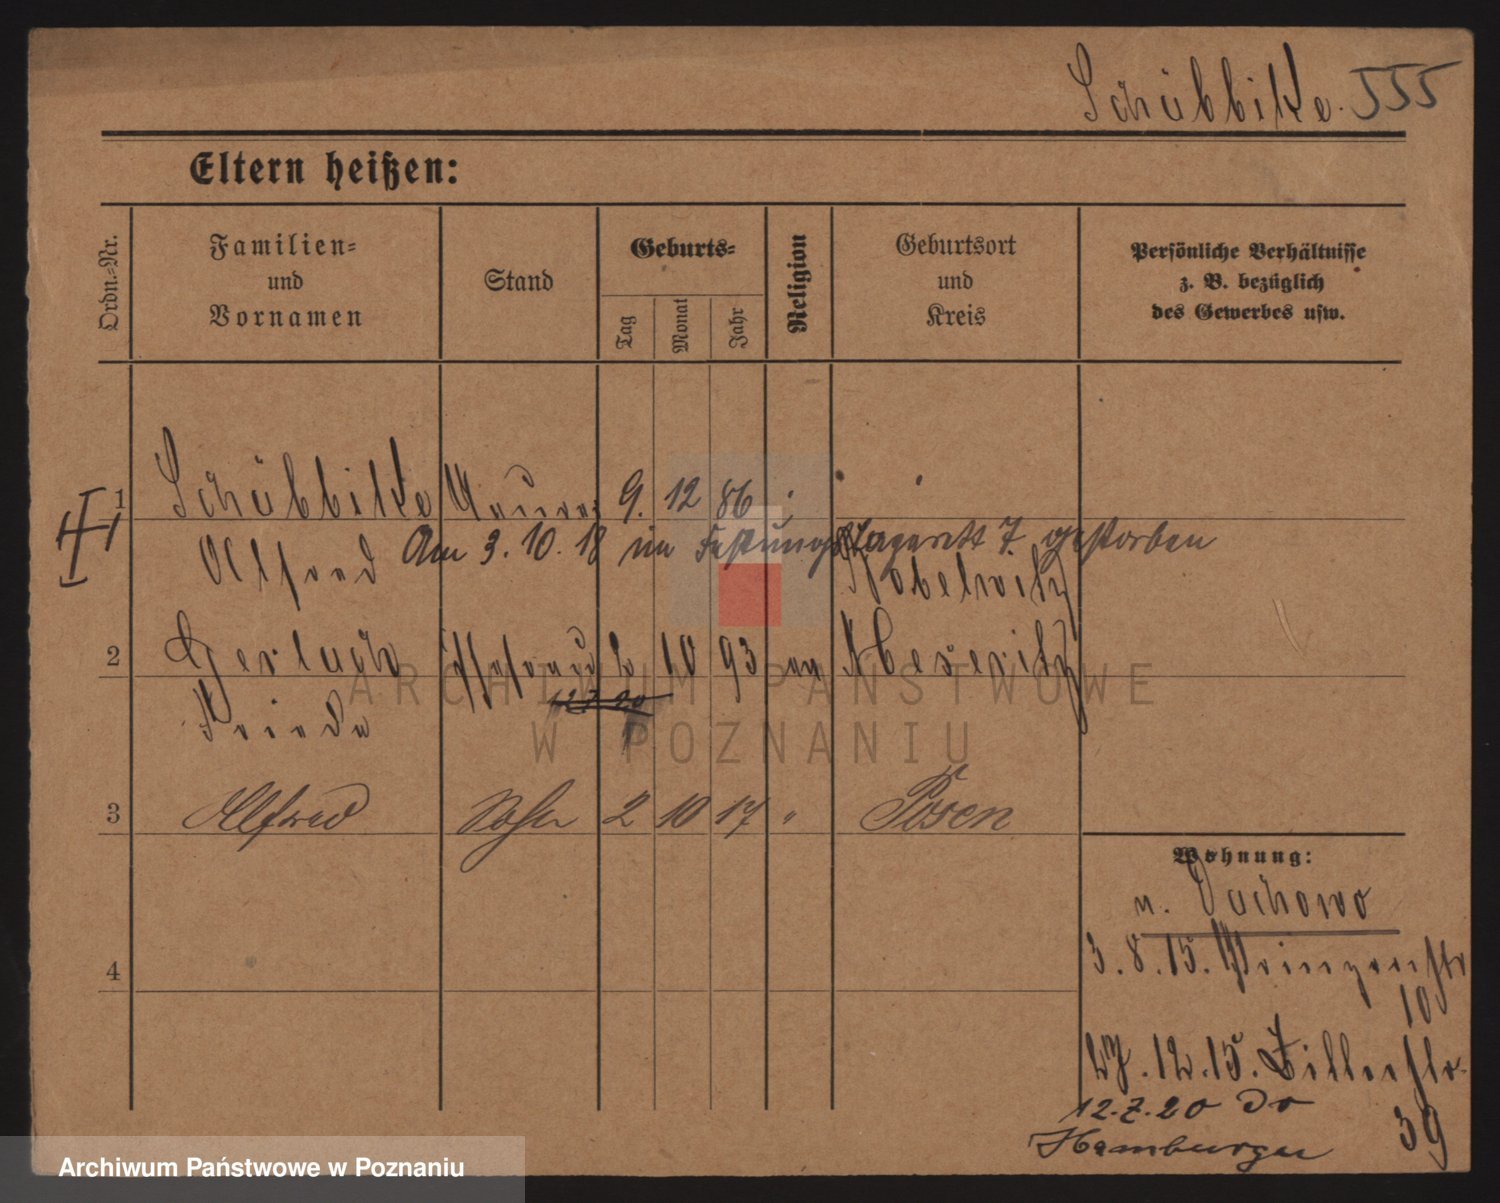 Schübbilke. 555
Eltern heißen:
Ordn.-Nr.
Familien-
und
Vornamen
Stand
Geburts-
Tag
Monat
Jahr
Religion
Geburtsort
und
Kreis
Persönliche Verhältnisse
z. B. bezüglich
des Gewerbes usw.
1 Schübbilke Maurer 9. 12 86
Alfred Am 3. 10. 18 im Festungslazarett 7. gestorben
Kobelwitz
2 Gerlach Ehefrau 2 10 93 ev Meseritz
12.7.20
Frieda
3 Alfred Sohn 2 10 17 " Posen
Wohnung:
n. Dachowo
3. 8. 15. Prinzenstr
10
4
27. 12. 15. Zillerstr.
39
12.7.20 do
Hamburger
ARCHIWUM PAŃSTWOWE
W POZNANIU
Archiwum Państwowe w Poznaniu